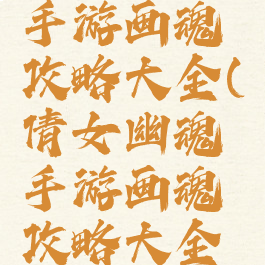 手游画魂
攻略大全(
倩女幽魂
手游画魂
攻略大全